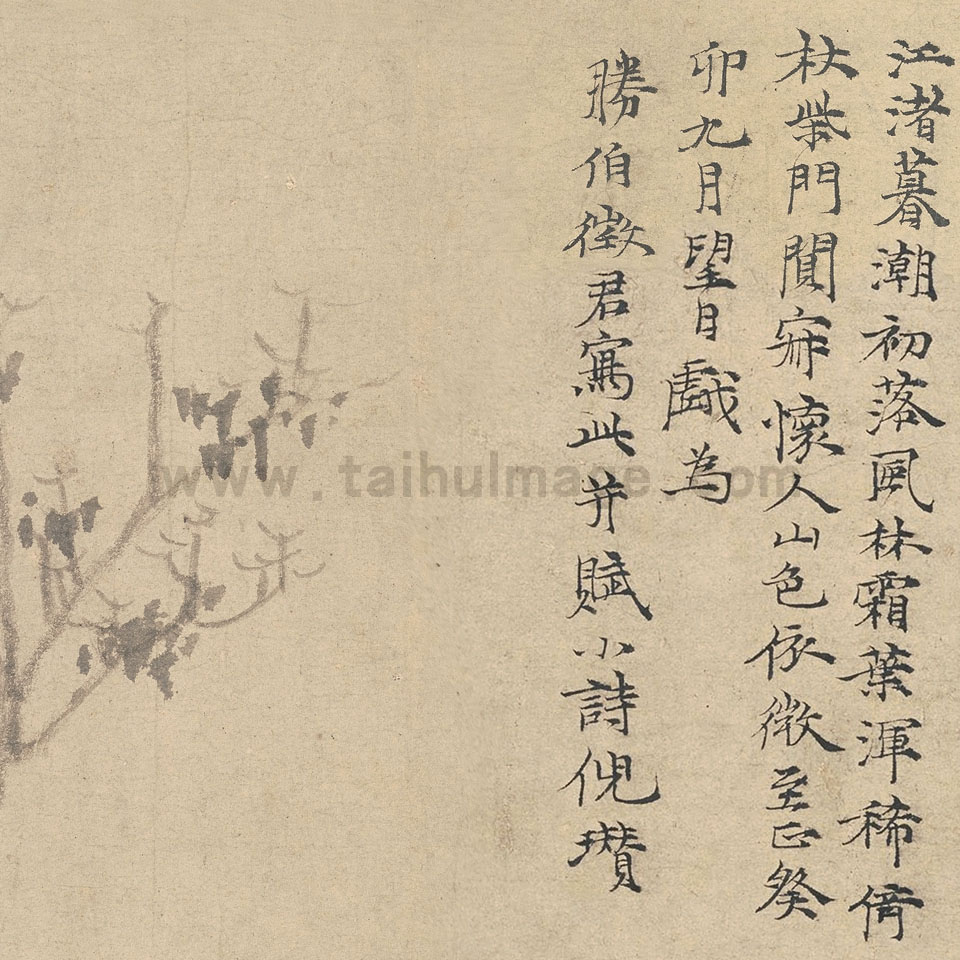 江渚暮潮初落風林霜葉渾稀倚
杖柴門闃寂懷人山色依微至正癸
卯九月望日戲為
勝伯徵君寫此并賦小詩倪瓚
www.taihuImage.com